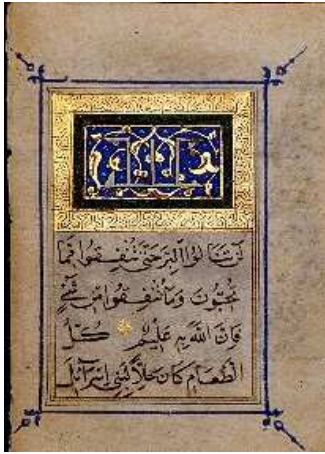 لن تنالوا البر حتى تنفقوا مما
تحبون وما تنفقوا من شئ
فان الله به عليم كل
الطعام كان حلا لبنى اسرائيل